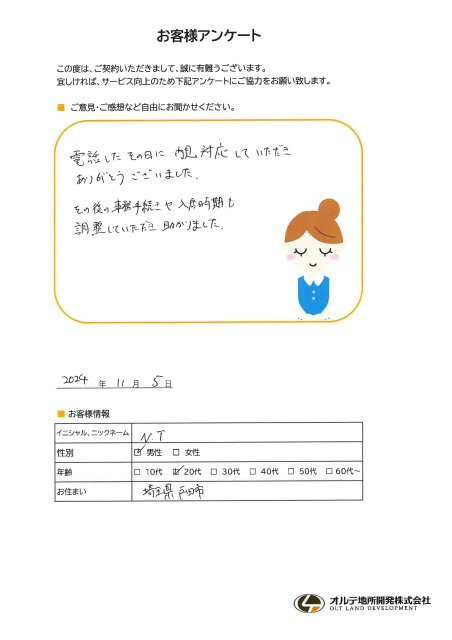 お客様アンケート
この度は、ご契約いただきまして、誠に有難うございます。
宜しければ、サービス向上のため下記アンケートにご協力をお願い致します。
■ ご意見・ご感想など自由にお聞かせください。
電話したその日に内見対応していただき
ありがとうございました。
その後の事務手続きや入居時期も
調整していただき助かりました。
2024 年 11 月 5 日
■ お客様情報
イニシャル、ニックネーム N.T
性別 ☑ 男性 □ 女性
年齢 □ 10代 ☑ 20代 □ 30代 □ 40代 □ 50代 □ 60代～
お住まい 埼玉県戸田市
オルテ地所開発株式会社
OLT LAND DEVELOPMENT